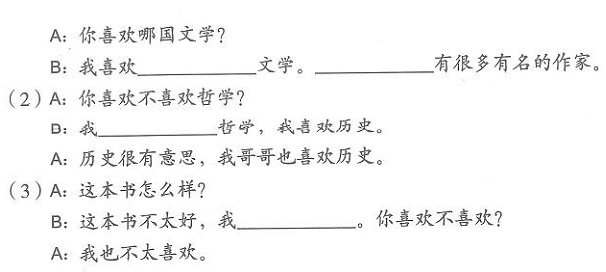 A：你喜欢哪国文学？
B：我喜欢____________文学。____________有很多有名的作家。
（2）A：你喜欢不喜欢哲学？
B：我____________哲学，我喜欢历史。
A：历史很有意思，我哥哥也喜欢历史。
（3）A：这本书怎么样？
B：这本书不太好，我____________。你喜欢不喜欢？
A：我也不太喜欢。